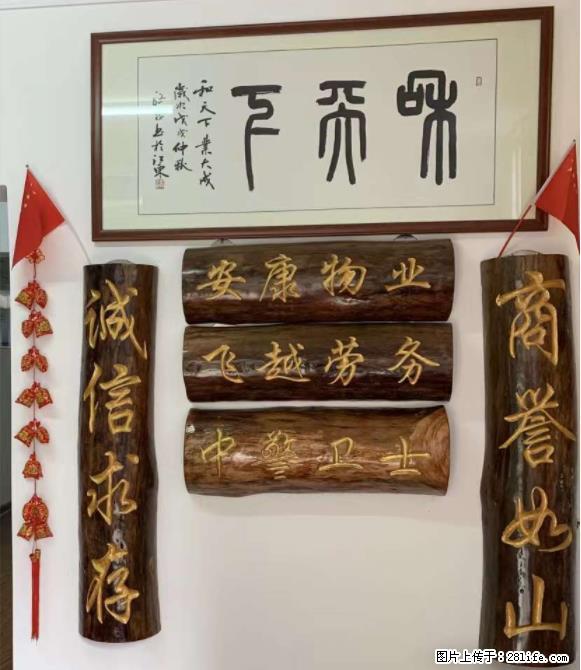 和天下
和天下 業大成
歲次戊戌仲秋
安康物业
飞越劳务
中警卫士
商誉如山
诚信求存
图片上传于：28life.com